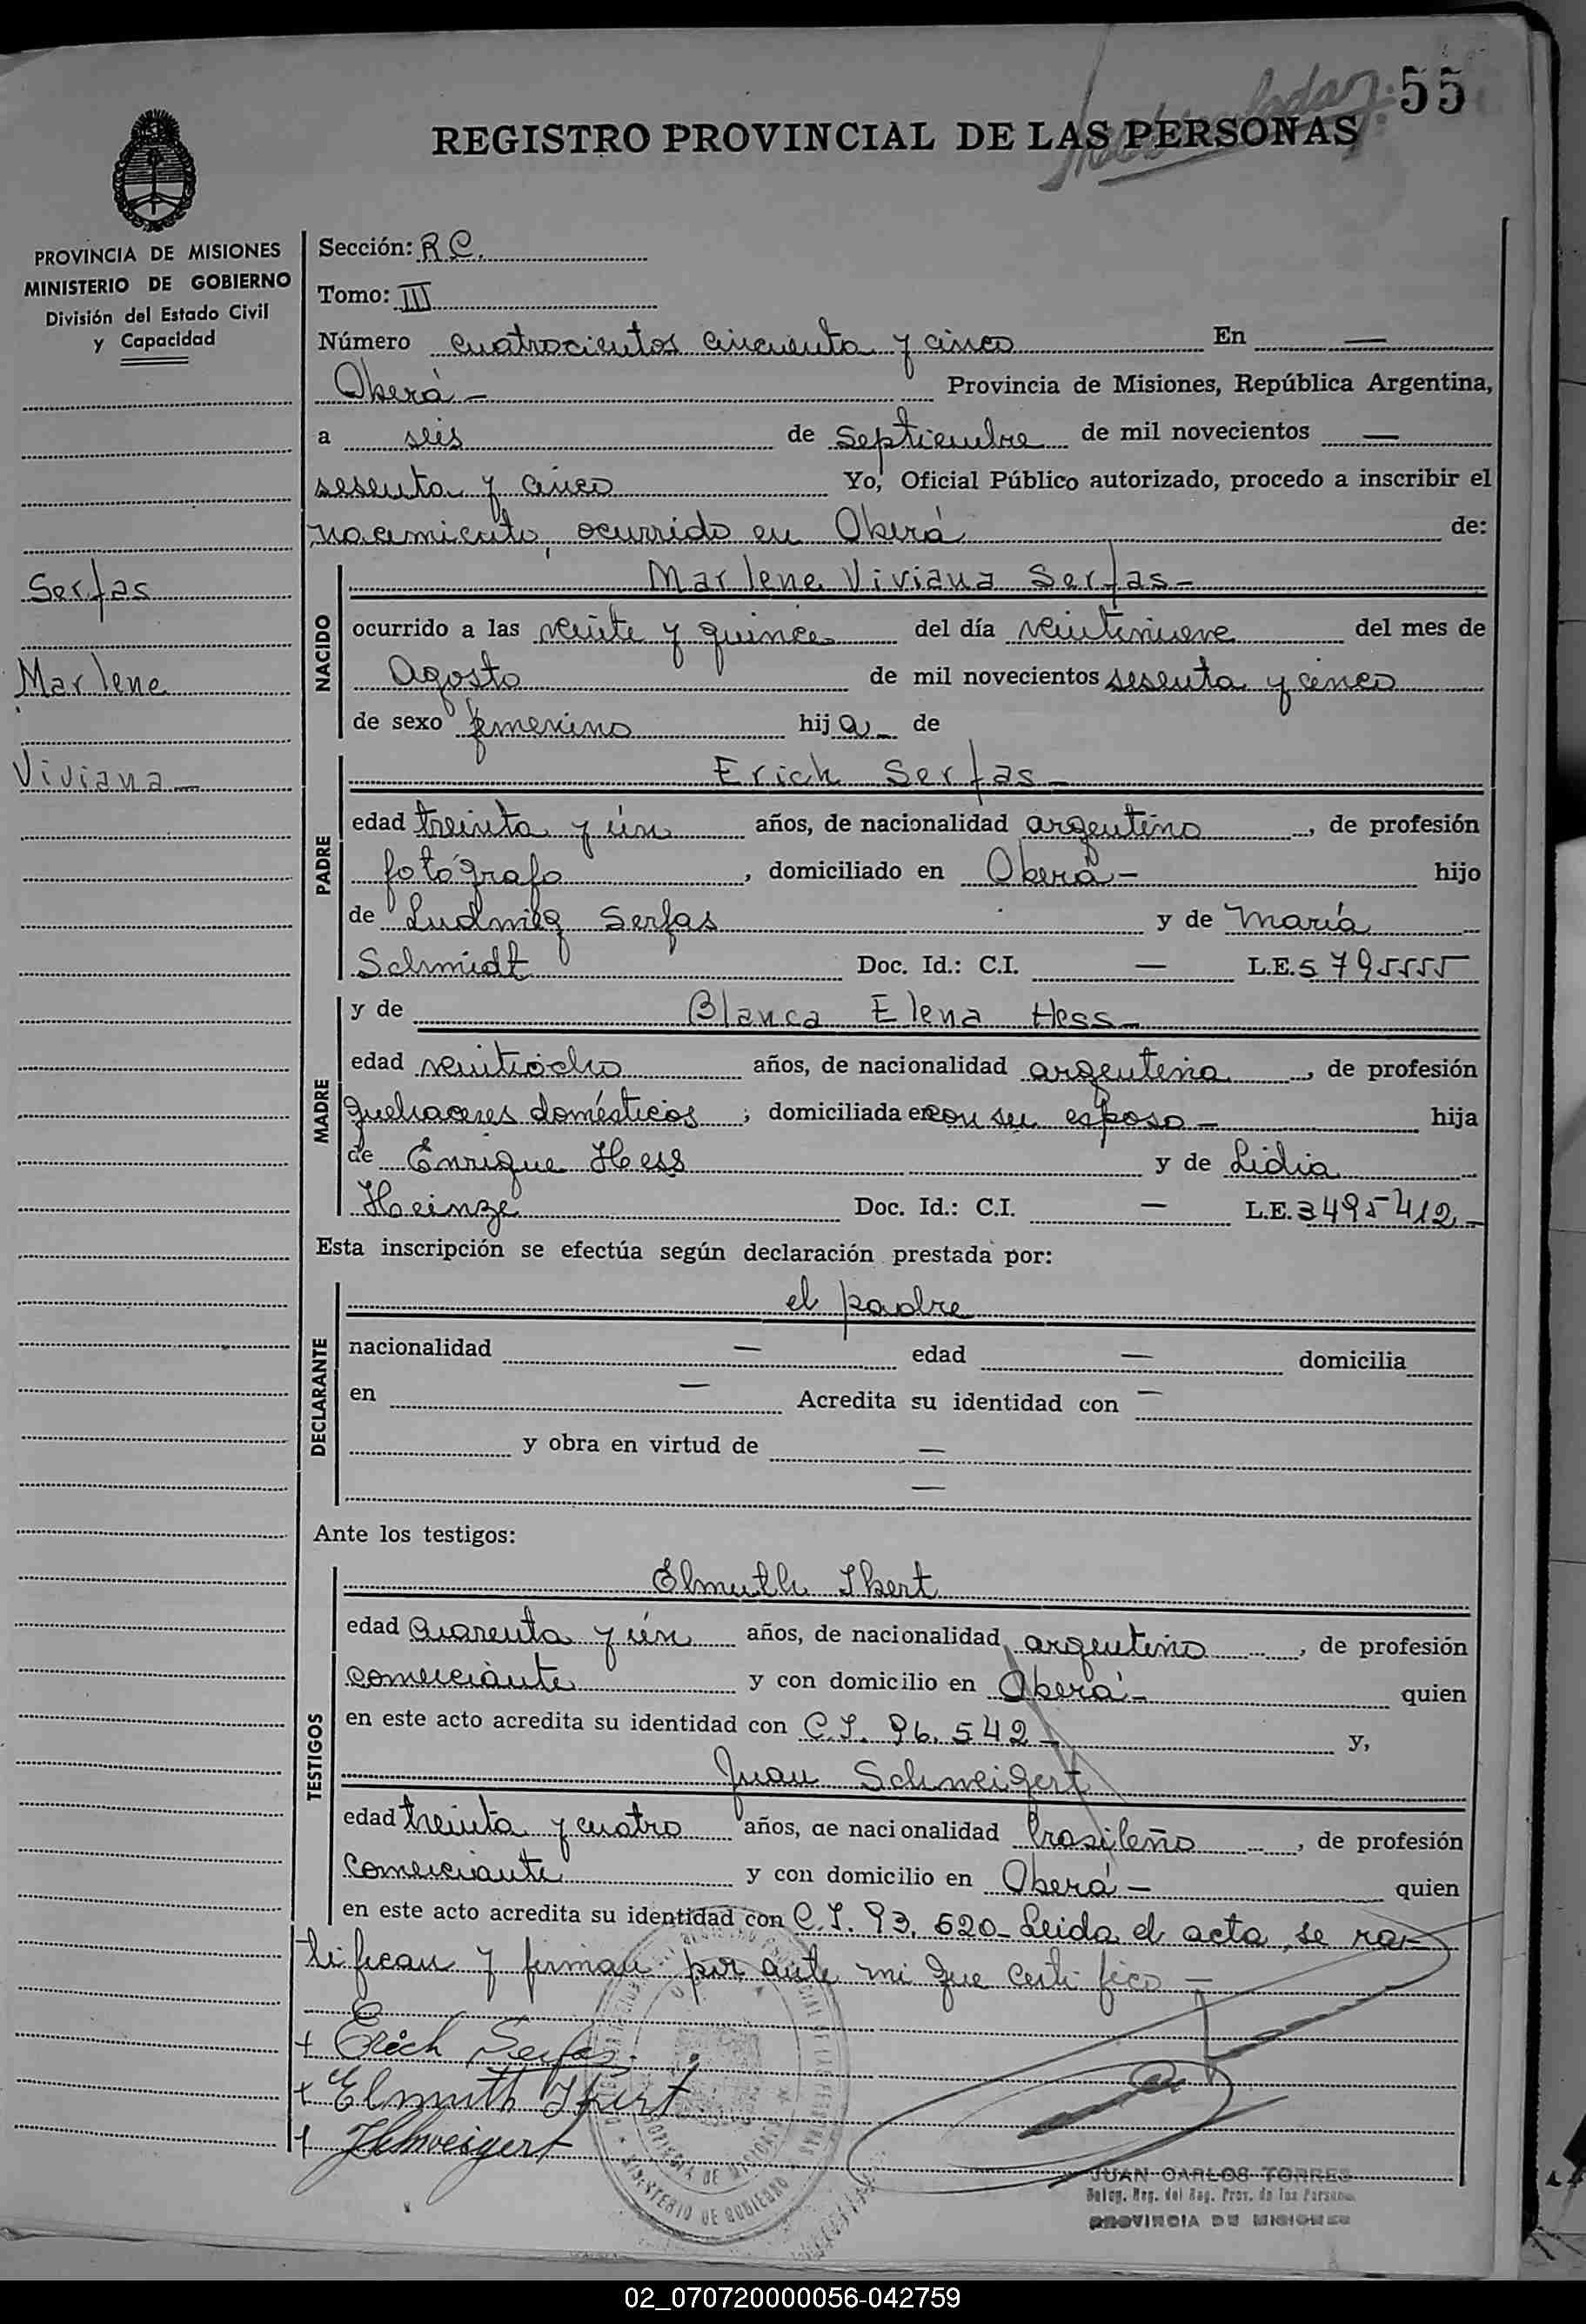 55
REGISTRO PROVINCIAL DE LAS PERSONAS
PROVINCIA DE MISIONES
MINISTERIO DE GOBIERNO
División del Estado Civil
y Capacidad
Serfas
Marlene
Viviana—
Sección: R C.
Tomo: III
Número cuatrocientos cincuenta y cinco En —
Oberá — Provincia de Misiones, República Argentina,
a seis de Septiembre de mil novecientos —
sesenta y cinco Yo, Oficial Público autorizado, procedo a inscribir el
nacimiento, ocurrido en Oberá de:
NACIDO
Marlene Viviana Serfas—
ocurrido a las veinte y quince del día veintinueve del mes de
Agosto de mil novecientos sesenta y cinco
de sexo femenino hija — de
PADRE
Erich Serfas—
edad treinta y ún años, de nacionalidad argentino, de profesión
fotógrafo, domiciliado en Oberá — hijo
de Ludwig Serfas y de María
Schmidt Doc. Id.: C.I. — L.E. 5795555
MADRE
y de Blanca Elena Hess—
edad veintiócho años, de nacionalidad argentina, de profesión
quehaceres domésticos, domiciliada en con su esposo — hija
de Enrique Hess y de Lidia
Heinze Doc. Id.: C.I. — L.E. 3495412—
Esta inscripción se efectúa según declaración prestada por:
DECLARANTE
el padre
nacionalidad — edad — domicilia
en — Acredita su identidad con —
y obra en virtud de —
—
Ante los testigos:
TESTIGOS
Elmuth Ibert
edad cuarenta y ún años, de nacionalidad argentino, de profesión
comerciante y con domicilio en Oberá — quien
en este acto acredita su identidad con C.I. 96.542— y,
Juan Schweigert
edad treinta y cuatro años, de nacionalidad brasileño, de profesión
comerciante y con domicilio en Oberá — quien
en este acto acredita su identidad con C.I. 93.620— Leida el acta, se ra-
tifican y firman por ante mi que certifico —
+ Erich Serfas.
+ Elmuth Ibert
+ JSchweigert
MINISTERIO DE GOBIERNO
PROVINCIA DE MISIONES
JUAN CARLOS TORRES
Deleg. Reg. del Reg. Prov. de las Personas
PROVINCIA DE MISIONES
02_070720000056-042759